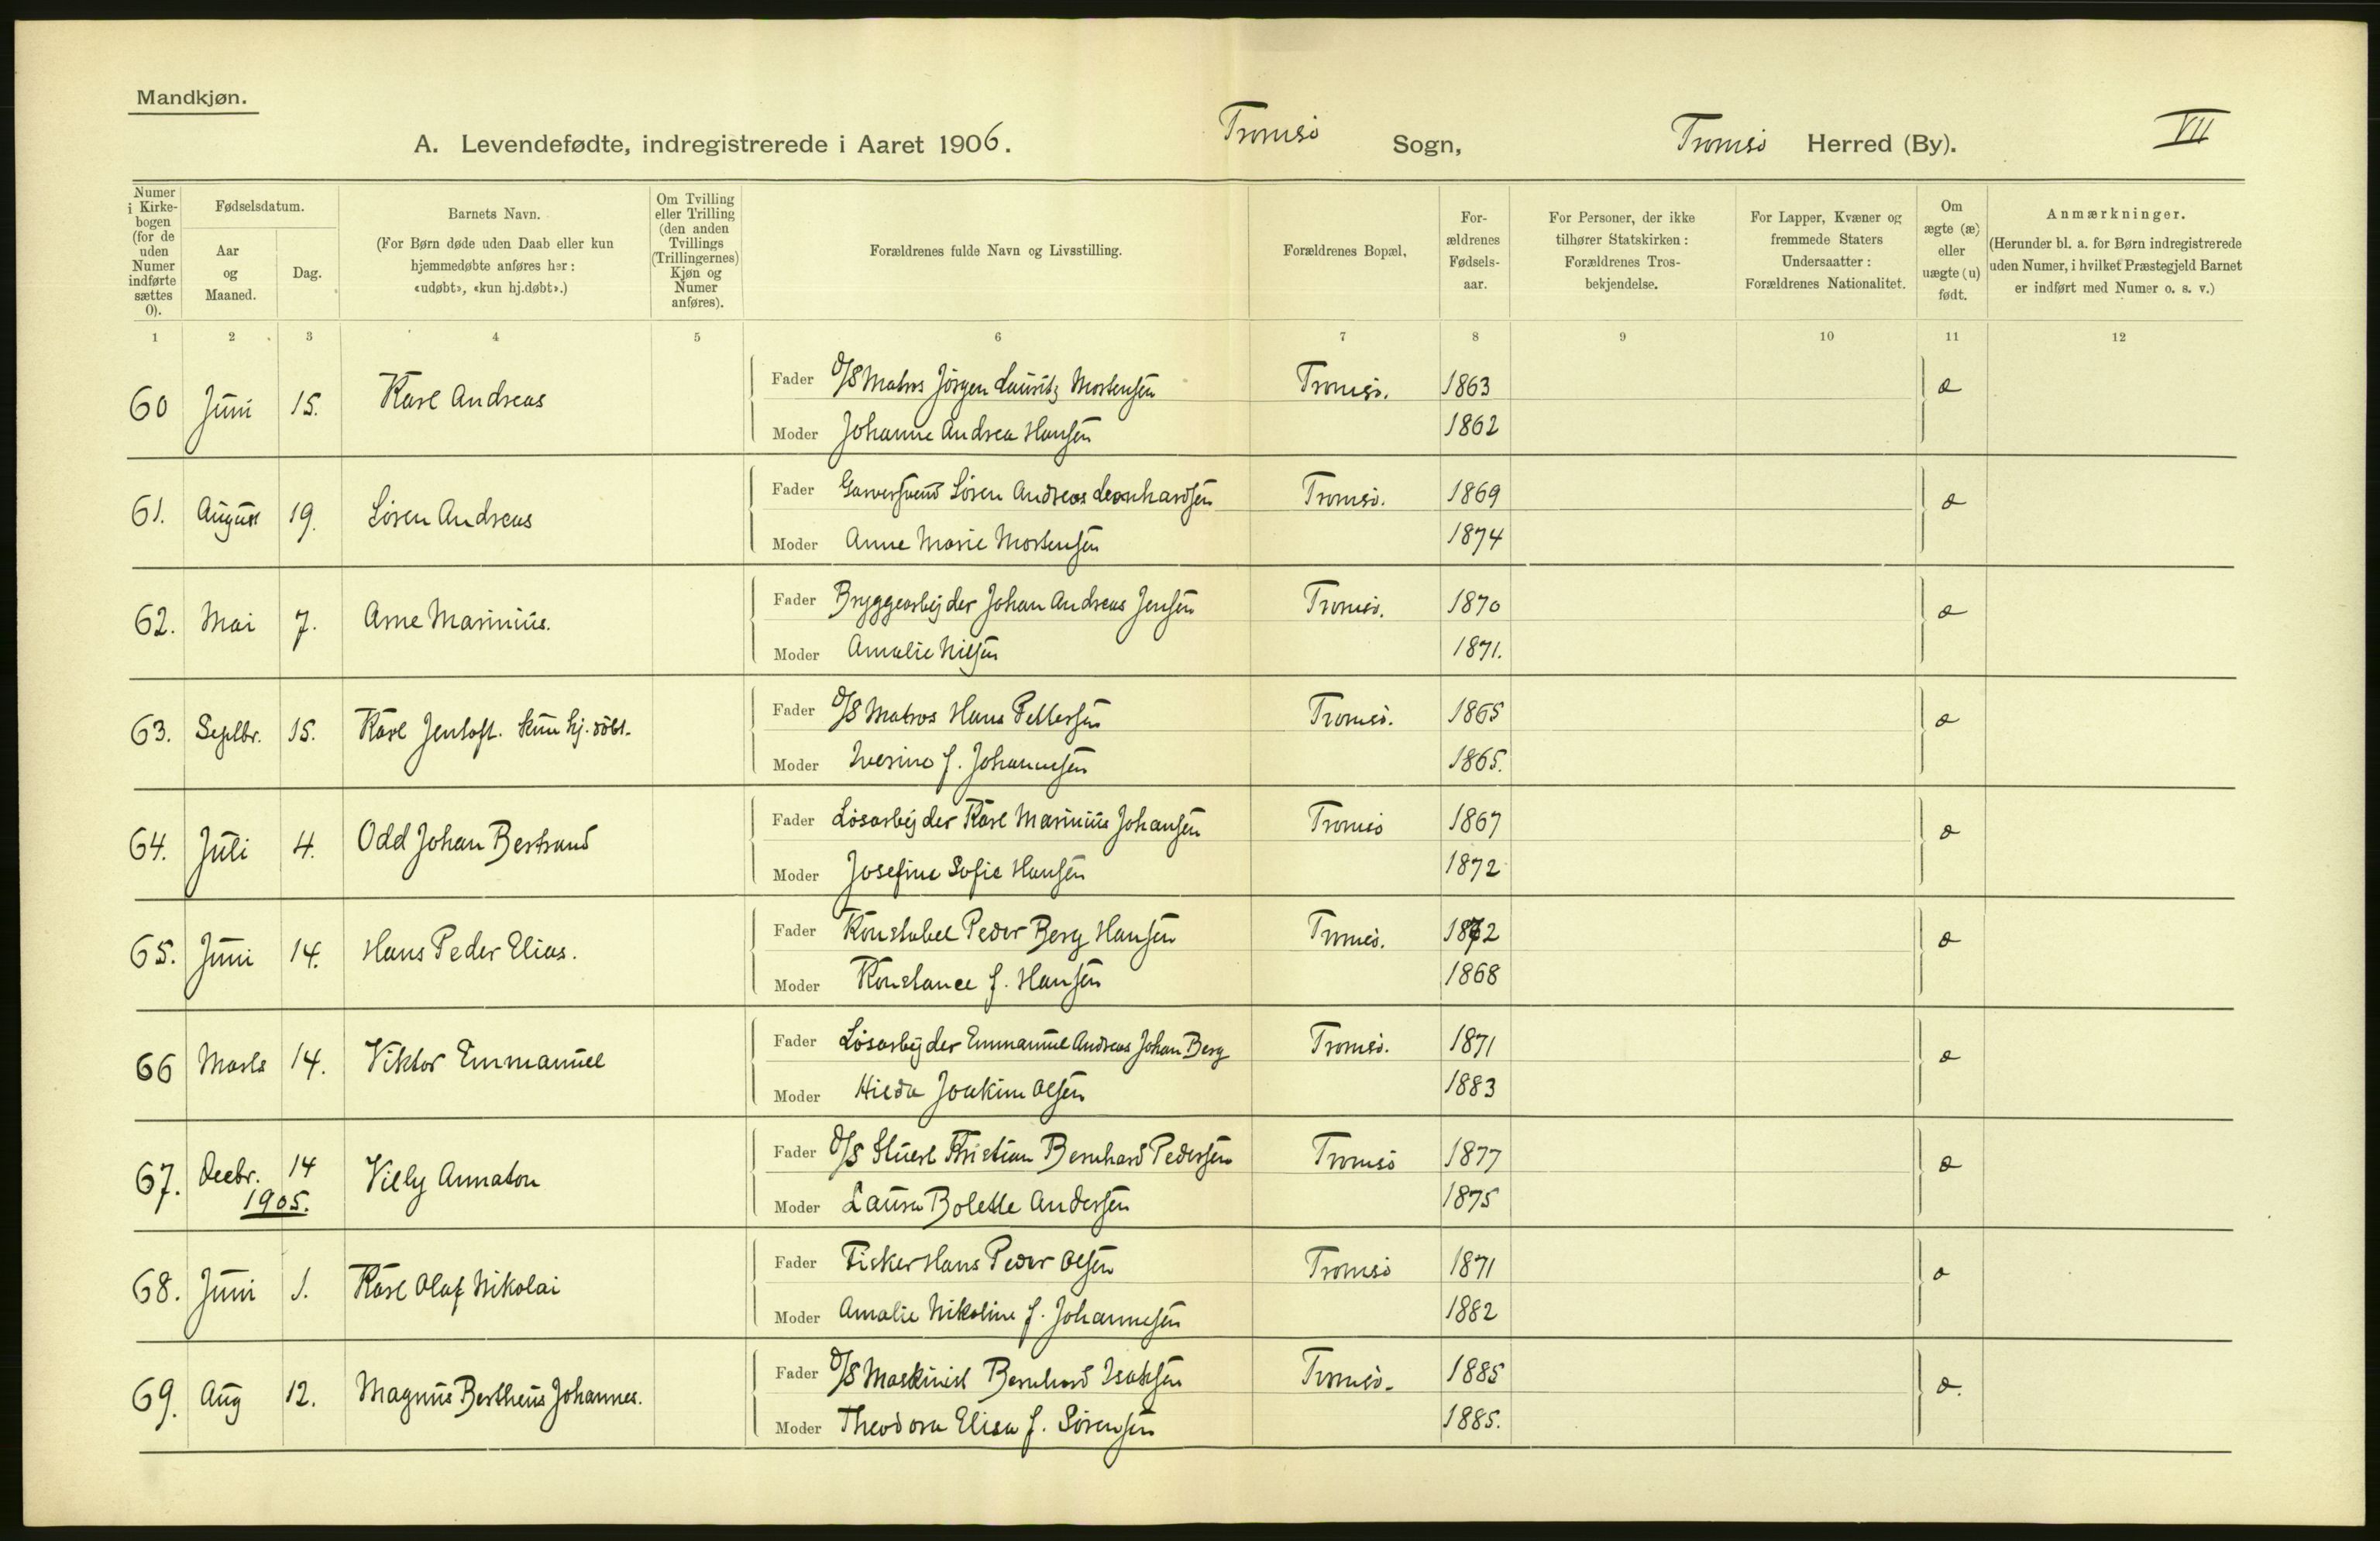 Mandkjøn.
A. Levendefødte, indregistrerede i Aaret 1906. Tromsö Sogn, Tromsö Herred (By). VII
Numer i Kirkebogen (for de uden Numer indførte sættes 0).
Fødselsdatum.
Aar og Maaned.
Dag.
Barnets Navn.
(For Børn døde uden Daab eller kun
hjemmedøbte anføres her:
«udøbt», «kun hj.døbt».)
Om Tvilling eller Trilling (den anden Tvillings (Trillingernes) Kjøn og Numer anføres).
Forældrenes fulde Navn og Livsstilling.
Forældrenes Bopæl,
Forældrenes Fødselsaar.
For Personer, der ikke tilhører Statskirken: Forældrenes Trosbekjendelse.
For Lapper, Kvæner og fremmede Staters Undersaatter: Forældrenes Nationalitet.
Om ægte (æ) eller uægte (u) født.
Anmærkninger.
(Herunder bl. a. for Børn indregistrerede
uden Numer, i hvilket Præstegjeld Barnet
er indført med Numer o. s. v.)
1 2 3 4 5 6 7 8 9 10 11 12
60 Juni 15. Karl Andreas Fader D/S Matros Jörgen Lauritz Mortensen Tromsö. 1863 æ
Moder Johanne Andrea Hansen 1862
61. August 19. Sören Andreas Fader Garversvend Sören Andreas Leonhardsen Tromsö. 1869 æ
Moder Anne Marie Mortensen 1874
62. Mai 7. Arne Marinius. Fader Bryggearbejder Johan Andreas Jensen Tromsö. 1870 æ
Moder Amalie Nilsen 1871.
63. Septbr. 15. Karl Jentoft. kun hj. döbt. Fader D/S Matros Hans Pettersen Tromsö. 1865 æ
Moder Iverine f. Johannesen 1865.
64. Juli 4. Odd Johan Bertrand Fader Lösarbejder Karl Marinius Johansen Tromsö 1867 æ
Moder Josefine Sofie Hansen 1872
65. Juni 14. Hans Peder Elias. Fader Konstabel Peder Berg Hansen Tromsö. 1872 æ
Moder Konstance f. Hansen 1868
66 Marts 14. Viktor Emmanuel Fader Lösarbejder Emmanuel Andreas Johan Berg Tromsö. 1871 æ
Moder Hilda Joakim Olsen 1883
67. Decbr. 14 Villy Annaton Fader D/S Stuert Kristian Bernhard Pedersen Tromsö 1877 æ
1905.
Moder Laura Bolette Andersen 1875
68. Juni 1. Karl Olaf Nikolai Fader Fisker Hans Peder Olsen Tromsö 1871 æ
Moder Amalie Nikoline f. Johannesen 1882
69. Aug 12. Magnus Bertheus Johannes. Fader D/S Maskinist Bernhard Isaksen Tromsö. 1885 æ.
Moder Theodora Elisa f. Sörensen 1885.